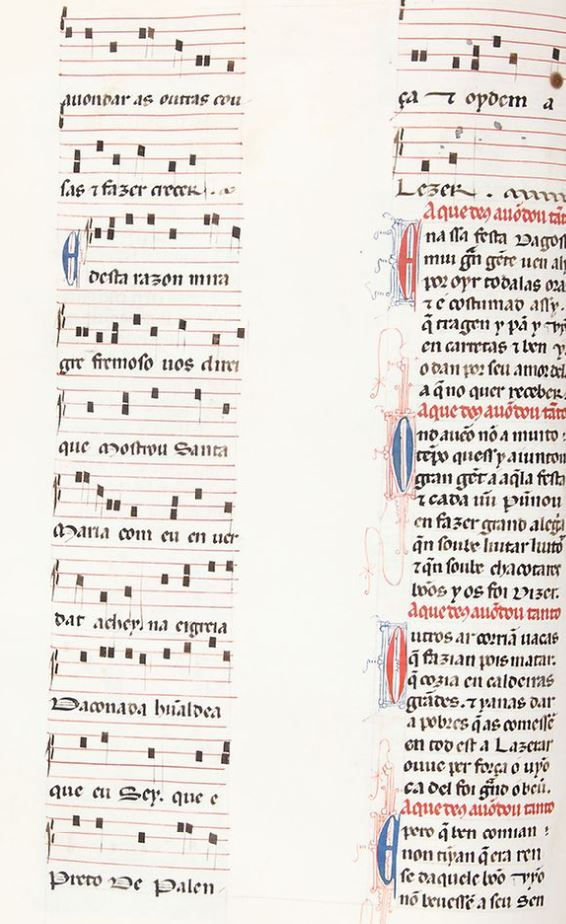 auondar as outras cou
sas ⁊ fazer crecer.
E desta razon mira
gre fremoso uos direi
que Mostrou Santa
Maria com eu en uer
dat achey. na eigreia
Daconada hũaldea
que eu Sey. que e
Preto De Palen
ça ⁊ oydem a
Lezer.
A que deus auõdou tãt
E na ssa festa Dagos
mui grã gẽte uen aly
por oyr todalas ora
⁊ é costumad assy.
q̃ tragen y pã y
en carretas ⁊ ben
o dan por seu amor del
a q̃ no quer receber.
A que deus auõdou tãto
Ond aueo nõ a muito
tẽpo quess y aiunton
gran gẽt a aq̃la festa
⁊ cada ũu punnou
en fazer grand alegi
q̃n soube luitar luito
⁊ q̃n soube chacotare
bõos y os foi Dizer.
A que deus auõdou tanto
Outros ar corriã uacas
q̃ fazian pois matar.
q̃ cozia en caldeiras
grãdes. ⁊ panas dar
a pobres q̃ as comesse
en tod est a Lazerar
ouue per força o
ca del foi grãd o beu.
A que deus auõdou tanto
E pero q̃ ben comian
non tijan q̃ era ren
se daquele bõo
nõ beuessẽ a seu Sen